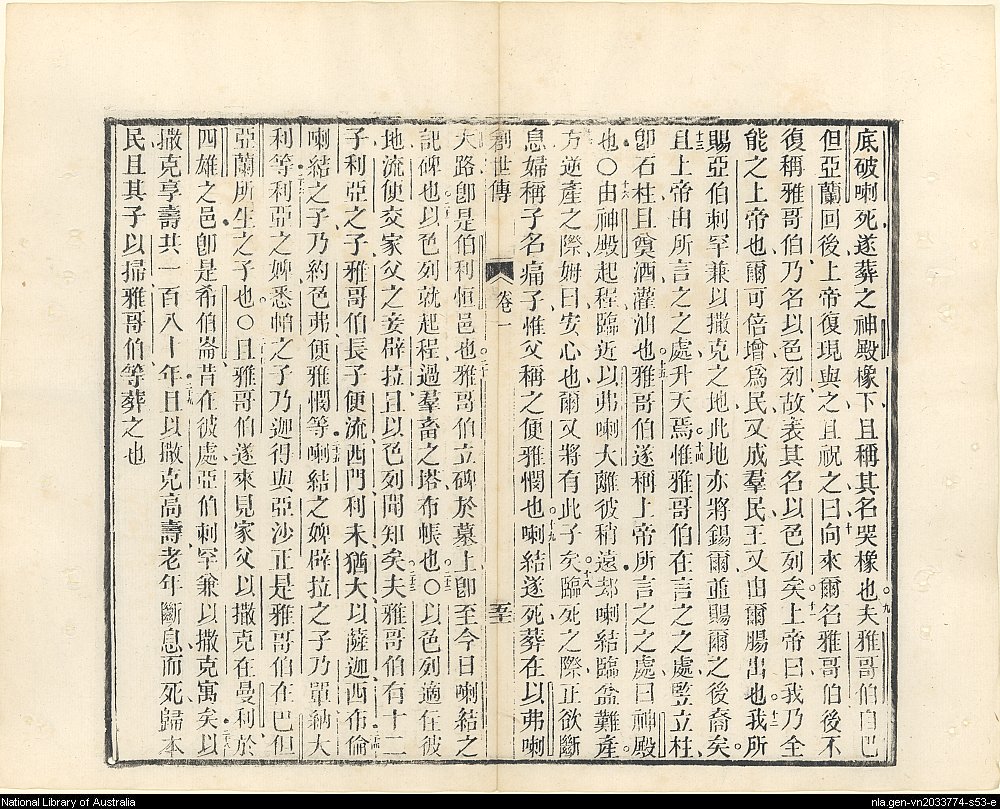 底破喇死遂葬之神殿橡下且稱其名哭橡也夫雅哥伯自巴
但亞蘭回後上帝復現與之且祝之曰向來爾名雅哥伯後不
復稱雅哥伯乃名以色列故表其名以色列矣上帝曰我乃全
能之上帝也爾可倍增為民又成羣民王又由爾腸出也我所
賜亞伯剌罕兼以撒克之地此地亦將錫爾並賜爾之後裔矣
且上帝由所言之之處升天焉惟雅哥伯在言之之處豎立柱
卽石柱且奠酒灌油也雅哥伯遂稱上帝所言之之處曰神殿
也〇由神殿起程臨近以弗喇大離彼稍遠却喇結臨盆難產
方逆產之際姆曰安心也爾又將有此子矣臨死之際正欲斷
息婦稱子名痛子惟父稱之便雅憫也喇結遂死葬在以弗喇
創世傳 卷一 五十
大路卽是伯利恒邑也雅哥伯立碑於墓上卽至今日喇結之
記碑也以色列就起程過羣畜之塔布帳也〇以色列適在彼
地流便交家父之妾辟拉且以色列聞知矣夫雅哥伯有十二
子利亞之子雅哥伯長子便流西門利未猶大以薩迦西布倫
喇結之子乃約色弗便雅憫等喇結之婢辟拉之子乃單納大
利等利亞之婢悉帕之子乃迦得與亞沙正是雅哥伯在巴但
亞蘭所生之子也〇且雅哥伯遂來見家父以撒克在曼利於
四雄之邑卽是希伯崙昔在彼處亞伯剌罕兼以撒克寓矣以
撒克享壽共一百八十年且以撒克高壽老年斷息而死歸本
民且其子以掃雅哥伯等葬之也
九
十
十一
十二
十三
十四
十五
十六
十八
十九
二十
二十一
二十二
二十三
二十四
二十五
二十八
二十九
National Library of Australia
nla.gen-vn2033774-s53-e